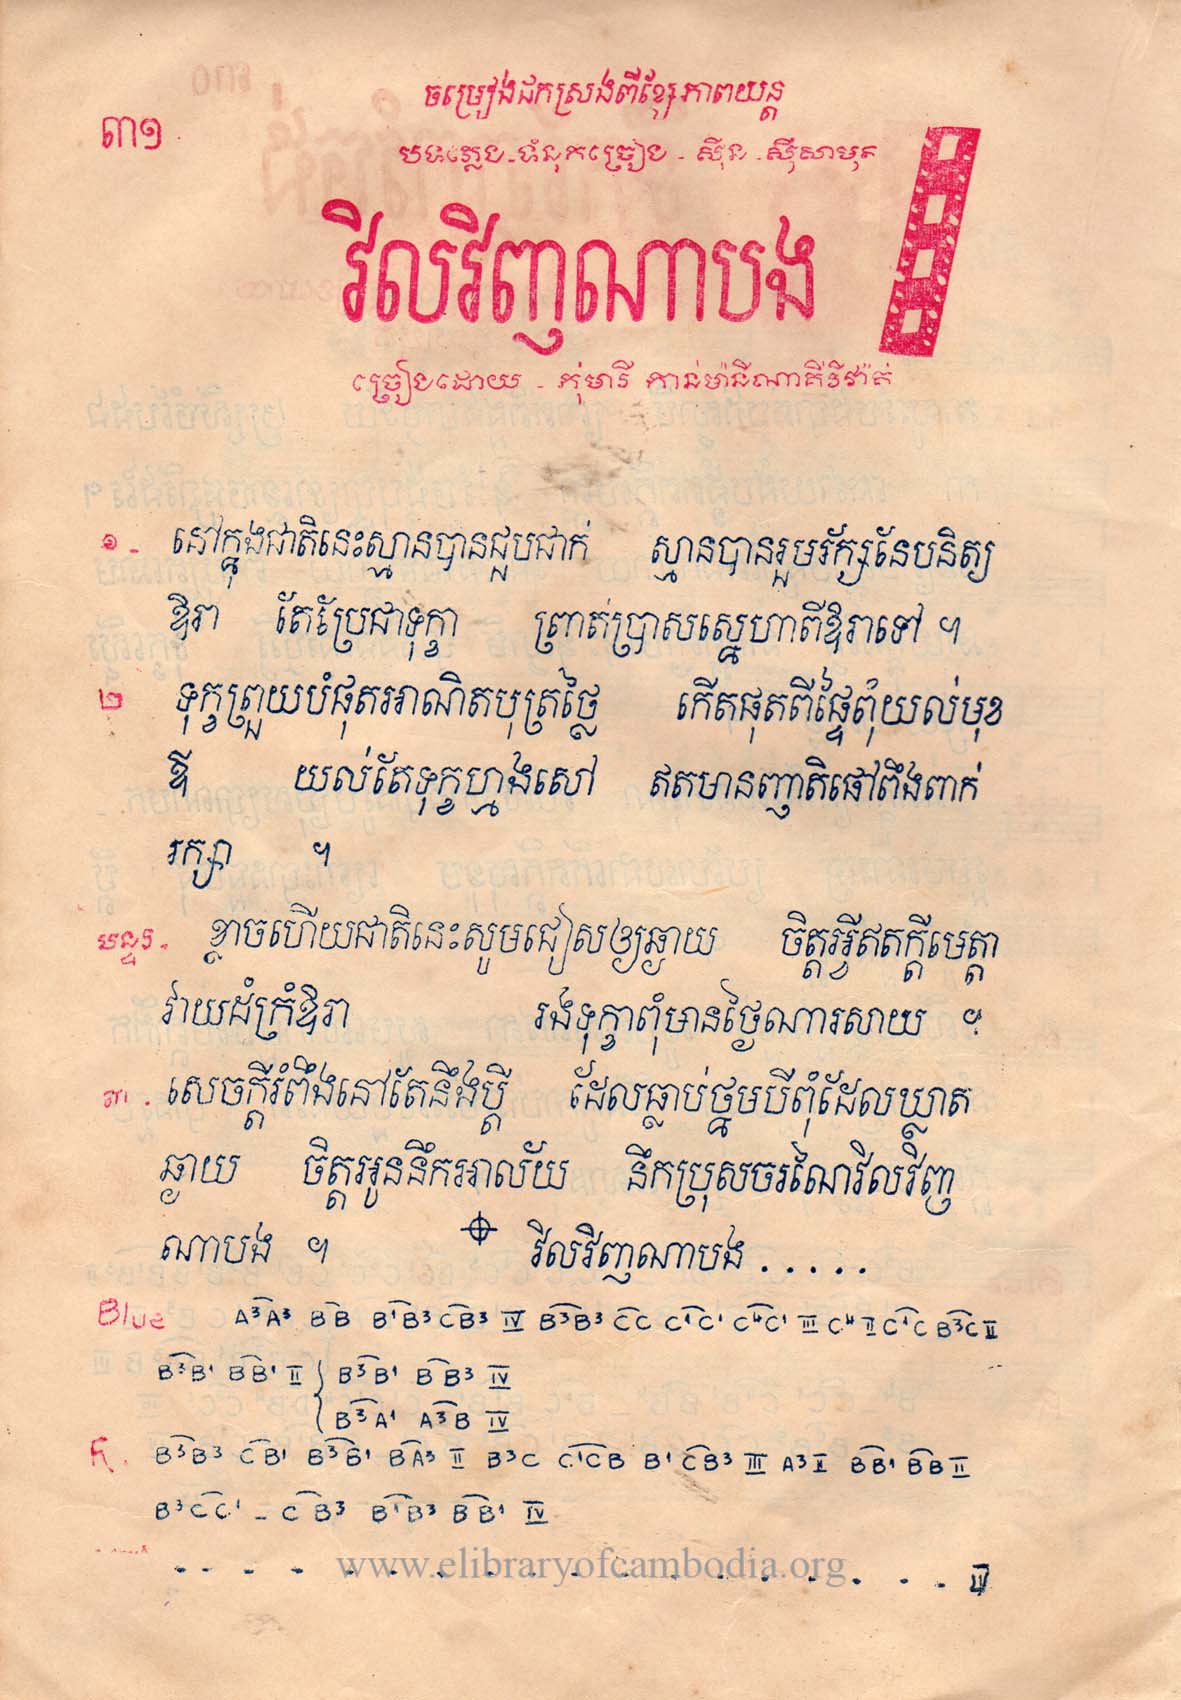 ចម្រៀងដកស្រង់ពីខ្សែភាពយន្ត
៣១
បទភ្លេង-ទំនុកច្រៀង - ស៊ីន - ស៊ីសាមុត
វិលវិញណាបង
ច្រៀងដោយ - កុំមារី កាន់ម៉ានីណាគីរីវ៉ាត់
១ - នៅក្នុងជាតិនេះស្មានបានជួបជាក់ ស្មានបានរួមរ័ក្សនែបនិត្យ
ឱរា តែប្រែជាទុក្ខា ព្រាត់ប្រាសស្នេហាពីឱរាទៅ ។
២ ទុក្ខព្រួយបំផុតអាណិតបុត្រថ្លៃ កើតផុតពីផ្ទៃពុំយល់មុខ
ឪ យល់តែទុក្ខហ្មងសៅ ឥតមានញាតិផៅពឹងពាក់
រក្សា ។
បន្ទរ - ខ្លាចហើយជាតិនេះសូមជៀសឲ្យឆ្ងាយ ចិត្តអ្វីឥតក្តីមេត្តា
វាយដំក្រំឱរា រងទុក្ខាពុំមានថ្ងៃណារសាយ ។
៣ - សេចក្តីរំពឹងនៅតែនឹងប្តី ដែលធ្លាប់ថ្នមបីពុំដែលឃ្លាត
ឆ្ងាយ ចិត្តអូននឹកអាល័យ នឹកប្រុសចរណៃវិលវិញ
ណាបង ។ វិលវិញណាបង . . . . .
Blue A³A³ BB B¹B³ CB³ IV B³B³ CC C¹C¹ C⁴C¹ III C⁴ II C¹C B³C II
B³B¹ BB¹ II B³B¹ BB³ IV
B³A¹ A³B IV
R. B³B³ CB¹ B³B¹ BA³ II B³C C¹CB B¹ CB³ III A³ I BB¹ BB II
B³CC¹ - CB³ B¹B³ BB¹ IV
www.elibraryofcambodia.org
IV